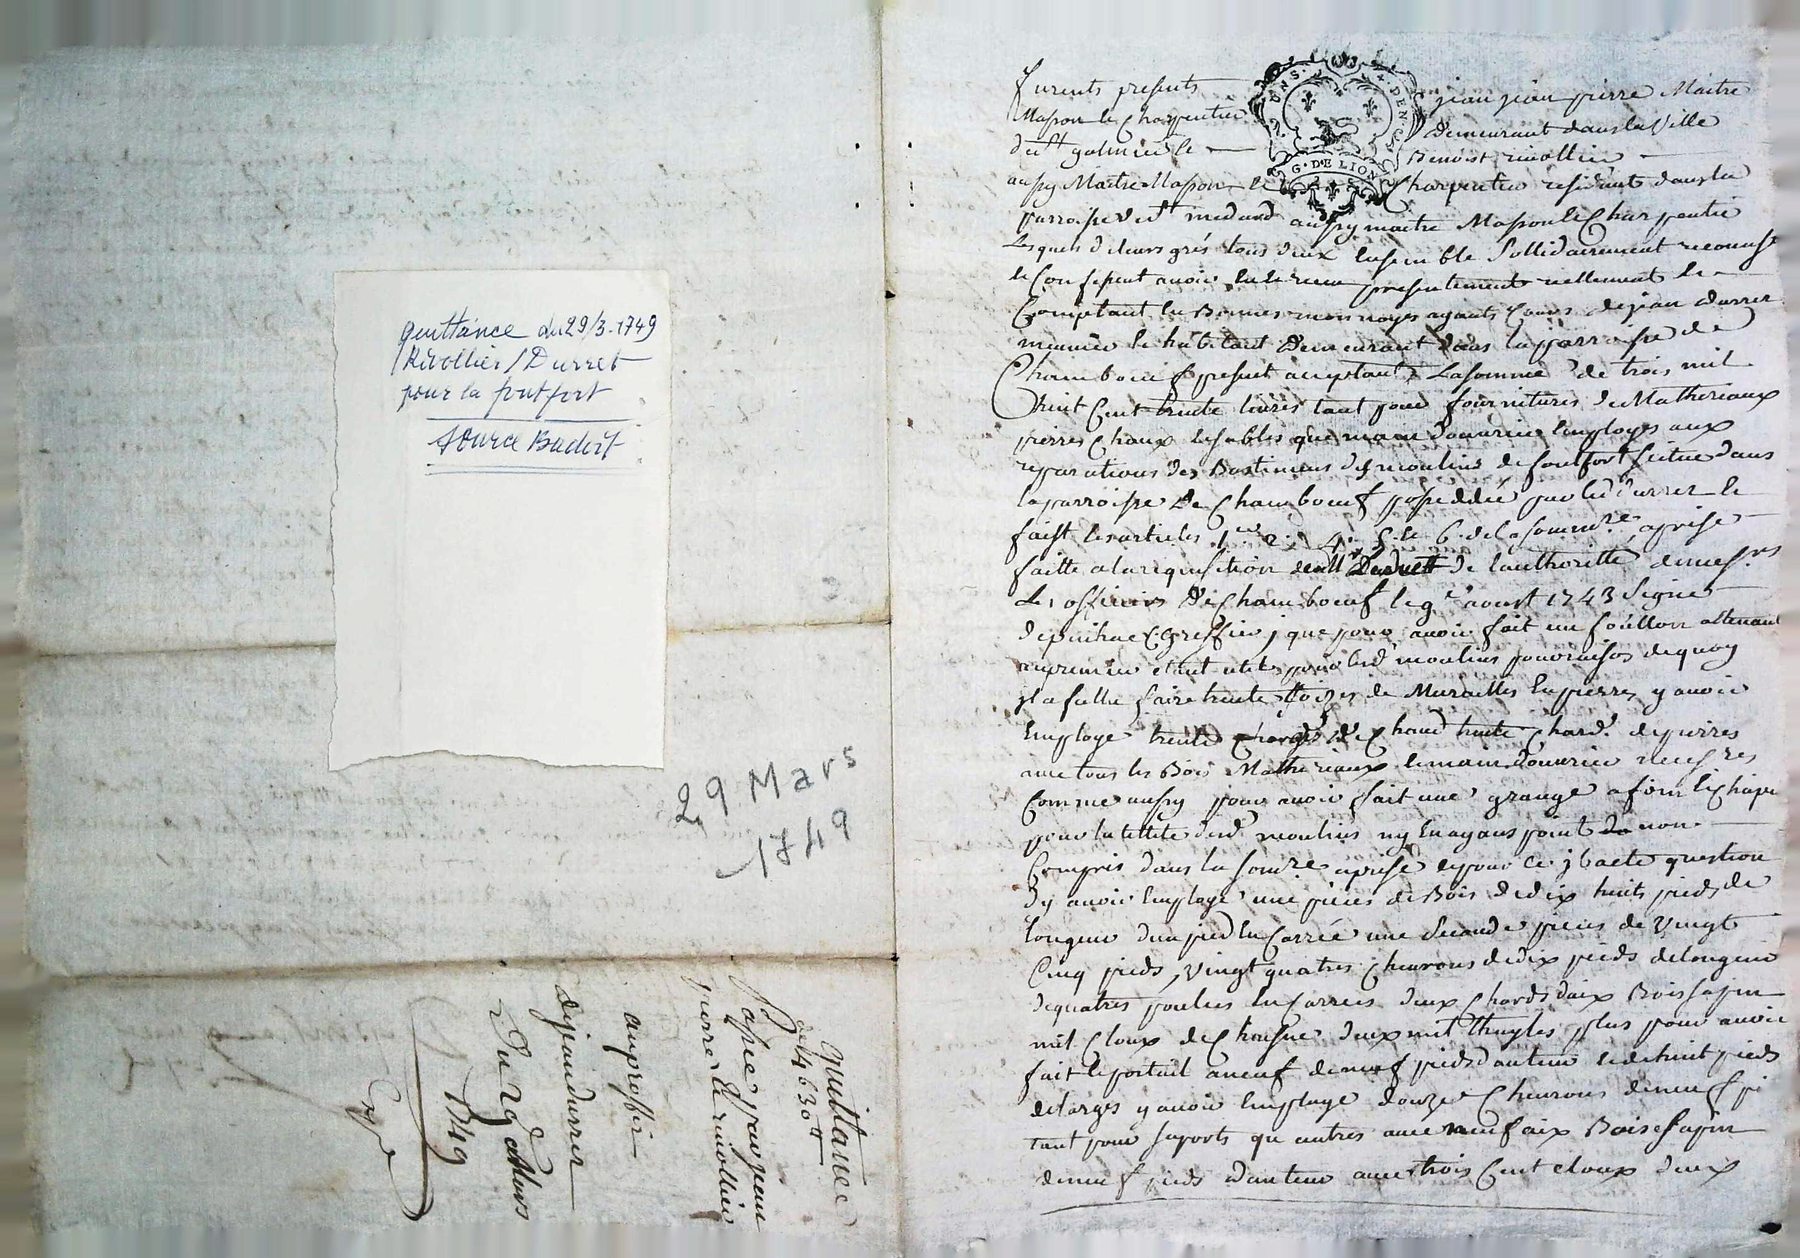 quittance du 29/3-1749
Rivollier/Durret
pour la fontfort
source Badoit
29 Mars
1749
quittance
de 4630 ll
passée par jean
pierre, et rivollier
au proffit
de jean durret
Du 29e Mars
1749
Expe
furents presents jean jean pierre Maitre
Masson et Charpentier demeurant dans la Ville
de St galmier et Benoist rivollier
aussy Maitre Masson et Charpentier residant dans la
parroisse de St medard aussy maitre Masson et Charpentier
Lesquels de leurs grés tous deux ensemble sollidairement
et Confessent avoir eu et receu presentement reellement et
Comptant en Bonnes monnoyes ayants Cours de jean durret
meunier et habitant demeurant dans la parroisse de
Chamboeuf present acceptant La somme de trois mil
huit Cent trente livres tant pour fournitures de Matheriaux
pierres Chaux et sables que main d'ouvrier employes aux
reparations des Bastimens des moulins de fontfort scitue dans
la parroisse de Chamboeuf possedée par led durret et
faist les articles 1er 2. 4. 5. et 6. de la sommre aprise
faitte a la requisition de l'authoritte de mess.rs
Les officiers de Chamboeuf le 9e aoust 1743 Signé
greffier, que pour avoir fait un foüllon attenant
au premier et utile pour lesd moulins pour raison de quoy
il a fallu faire trente toizes de Murailles en pierres y avoir
Employé trente Charges de Chaud trente Chard. de pierres
avec tous les Bois Matheriaux et main d'ouvrier
Comme aussy pour avoir fait une grange a foin
pour la desd. moulins ny en ayans point non
Compris dans la somre aprise et pour ce
D'y avoir Employé une pieces de Bois de dix huits pieds de
longeur d'un pied en Carrée une seconde pieces de Vingt
Cinq pieds, Vingt quatres Chevrons de dix pieds de longeur
de quatres pouces en Carrees deux Chards d'aix Bois sapin
mil Cloux de deux mil plus pour avoir
fait le portail a neuf de neuf pieds d'auteur et de huit pieds
de larges y avoir Employé douze Chevrons de neuf pi
tant pour suports qu autres avec neuf aix Bois sapin
de neuf pieds d'auteur avec trois Cent cloux deux
G. DE LION